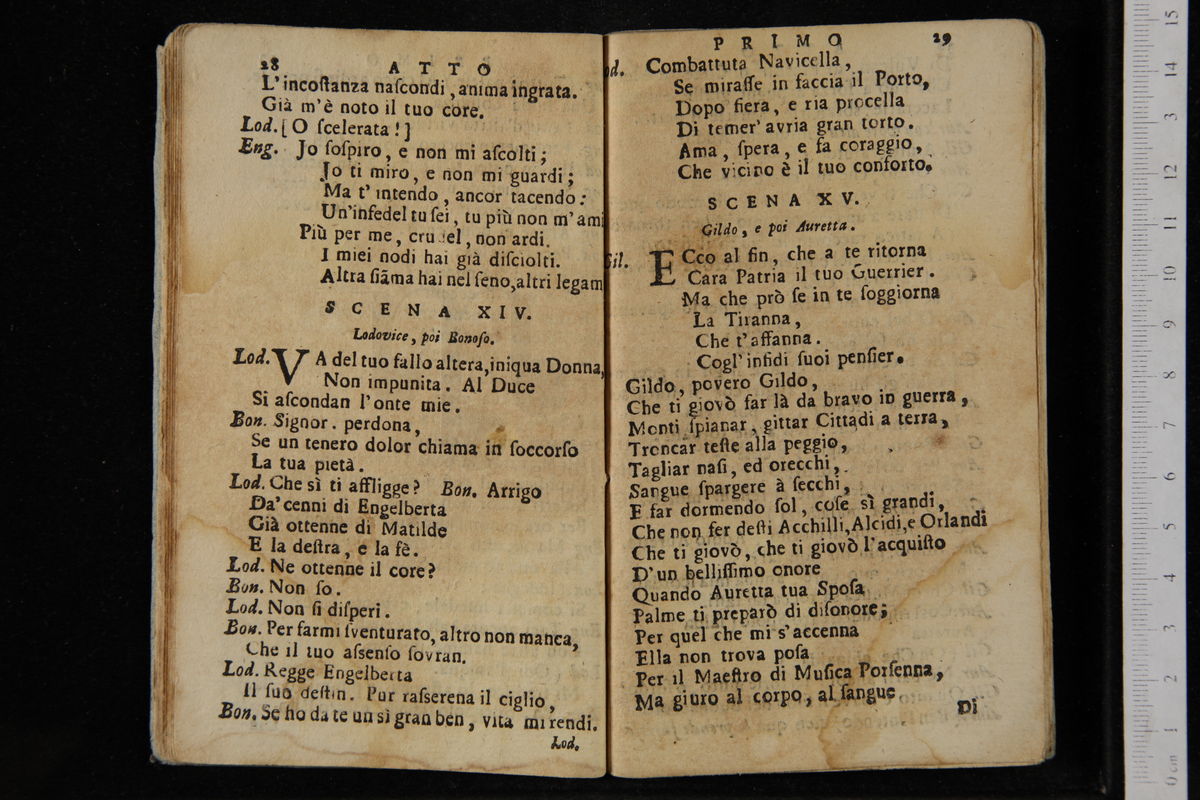 28 ATTO
L'incoſtanza naſcondi, anima ingrata.
Già m'è noto il tuo core.
Lod. [O ſcelerata!]
Eng. Jo ſoſpiro, e non mi aſcolti;
Jo ti miro, e non mi guardi;
Ma t'intendo, ancor tacendo:
Un'infedel tu ſei, tu più non m'ami
Più per me, crudel, non ardi.
I miei nodi hai già diſciolti.
Altra fiãma hai nel ſeno, altri legam
SCENA XIV.
Lodovico, poi Bonoſo.
Lod. VA del tuo fallo altera, iniqua Donna,
Non impunita. Al Duce
Si aſcondan l'onte mie.
Bon. Signor. perdona,
Se un tenero dolor chiama in ſoccorſo
La tua pietà.
Lod. Che sì ti affligge? Bon. Arrigo
Da' cenni di Engelberta
Già ottenne di Matilde
E la deſtra, e la fè.
Lod. Ne ottenne il core?
Bon. Non ſo.
Lod. Non ſi diſperi.
Bon. Per farmi ſventurato, altro non manca,
Che il tuo aſsenſo ſovran.
Lod. Regge Engelberta
Il ſuo deſtin. Pur raſserena il ciglio,
Bon. Se ho da te un sì gran ben, vita mi rendi.
Lod.
PRIMO 29
od. Combattuta Navicella,
Se miraſſe in faccia il Porto,
Dopo fiera, e ria procella
Di temer' avria gran torto.
Ama, ſpera, e fa coraggio,
Che vicino è il tuo conforto.
SCENA XV.
Gildo, e poi Auretta.
Gil. ECco al fin, che a te ritorna
Cara Patria il tuo Guerrier.
Ma che prò ſe in te ſoggiorna
La Tiranna,
Che t'affanna.
Cogl'infidi ſuoi penſier.
Gildo, povero Gildo,
Che ti giovò far là da bravo in guerra,
Monti ſpianar, gittar Cittadi a terra,
Troncar teſte alla peggio,
Tagliar naſi, ed orecchi,
Sangue ſpargere à ſecchi,
E far dormendo ſol, coſe sì grandi,
Che non fer deſti Acchilli, Alcidi, e Orlandi
Che ti giovò, che ti giovò l'acquiſto
D'un belliſſimo onore
Quando Auretta tua Spoſa
Palme ti preparò di diſonore;
Per quel che mi s'accenna
Ella non trova poſa
Per il Maeſtro di Muſica Porſenna,
Ma giuro al corpo, al ſangue
Di